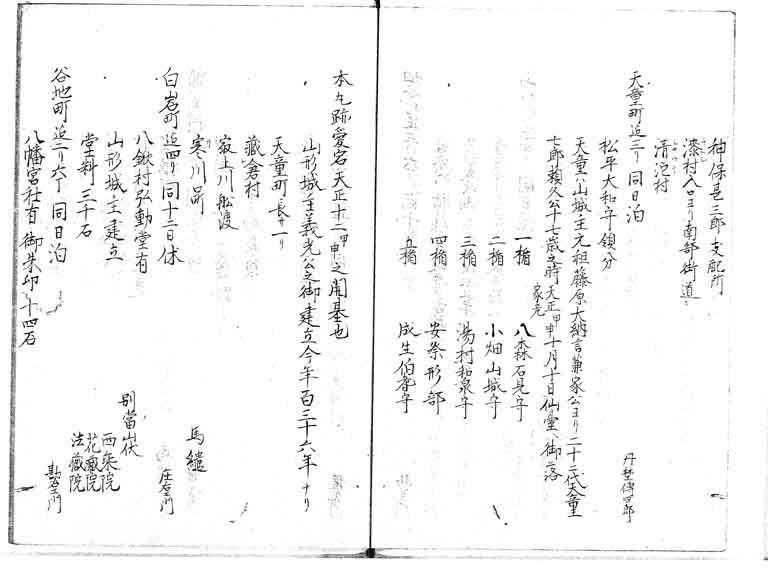 神保甚三郎支配所
漆村入口ヨリ南部街道ニ
清池村
天童町迄三リ 同日泊 丹埜傳四郎
松平大和守領分
天童ハ山城主元祖藤原大納言兼家公ヨリ二十二代天童
七郎頼久公十七歳之時天正甲申十月十日仙臺ヘ御落
家元
一楯 八森石見守
二楯 小畑山城守
三楯 湯村和泉守
四楯 安祭形部
五楯 成生伯耆守
本丸跡愛宕天正十二甲申之開基也
山形城主義光公之御建立今年百三十六年ナリ
天童町 長サ一リ
藏倉村
最上川船渡
寒川品町 馬繼
白岩町迄四リ 同十二日休 庄右エ門
八鍬村弘動堂有
山形城主建立 別當山伏
堂料 三千石 西藥院
花藏院
法藏院
谷地町迄二リ六丁 同日泊 勘右エ門
八幡宮社有 御朱印十四石